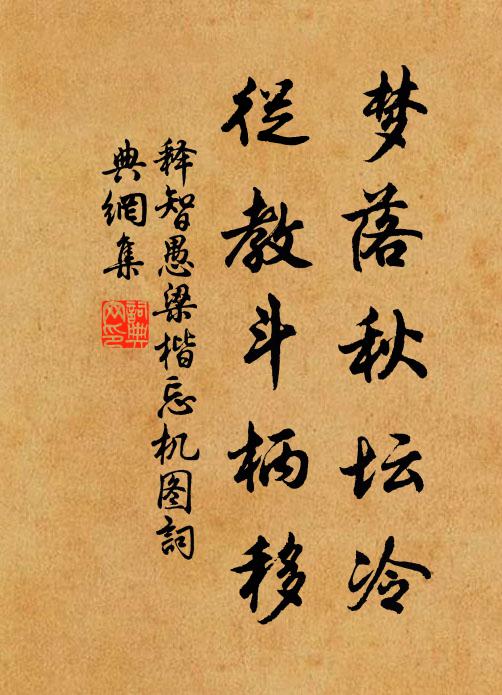 梦落秋坛冷
從教斗柄移
释智愚梁楷忘机图詞
典網集
詞典
网印